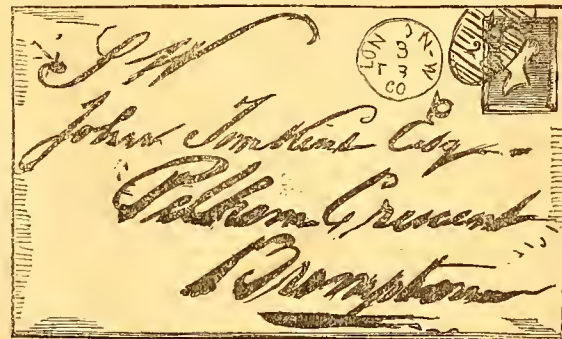 S W
LON
N.W
3
60
John Tomkins Esq
Pelham Crescent
Brompton